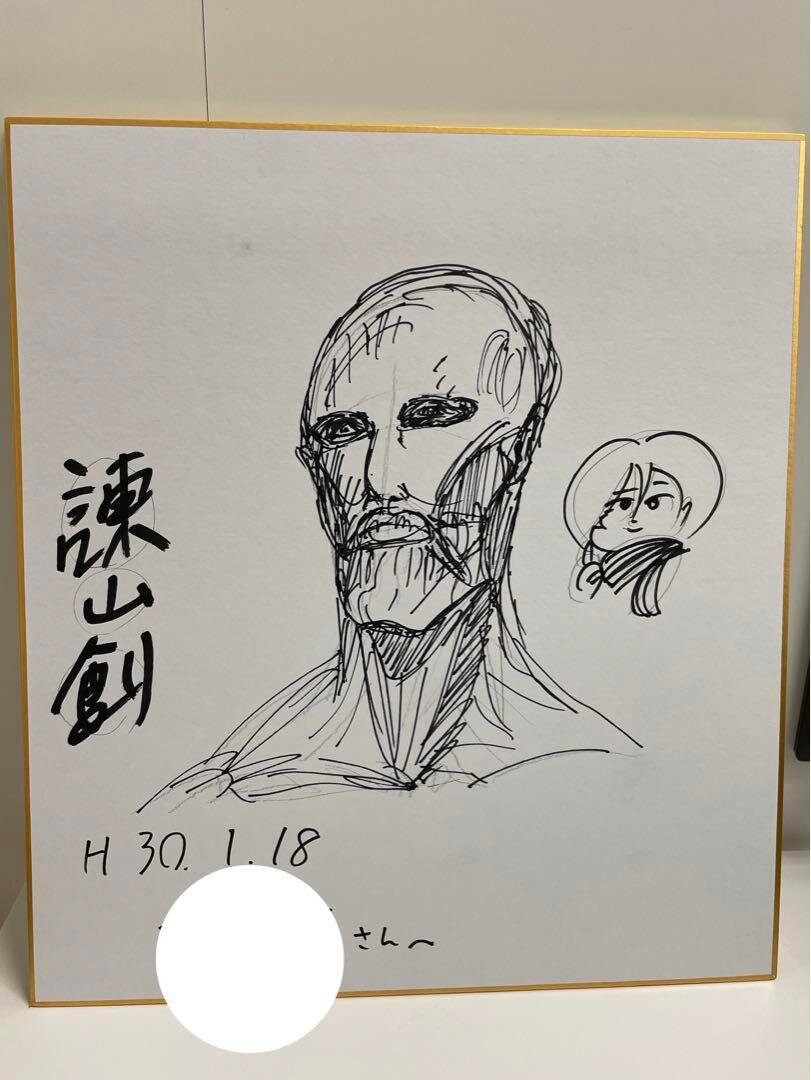 諫山創
H 30. 1. 18
さんへ